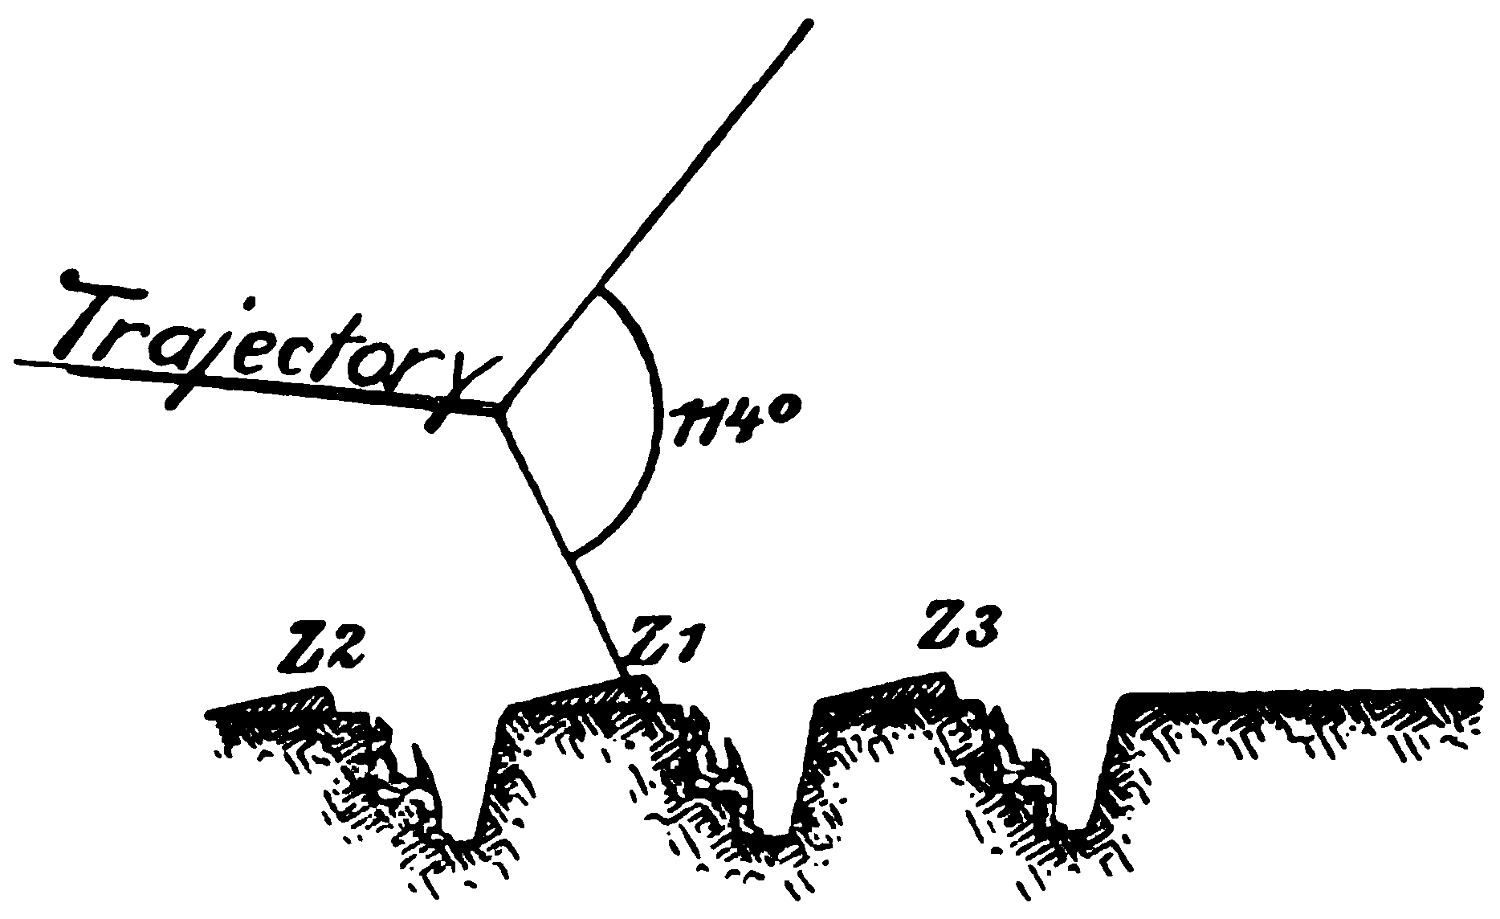 Trajectory
114°
Z2
Z1
Z3